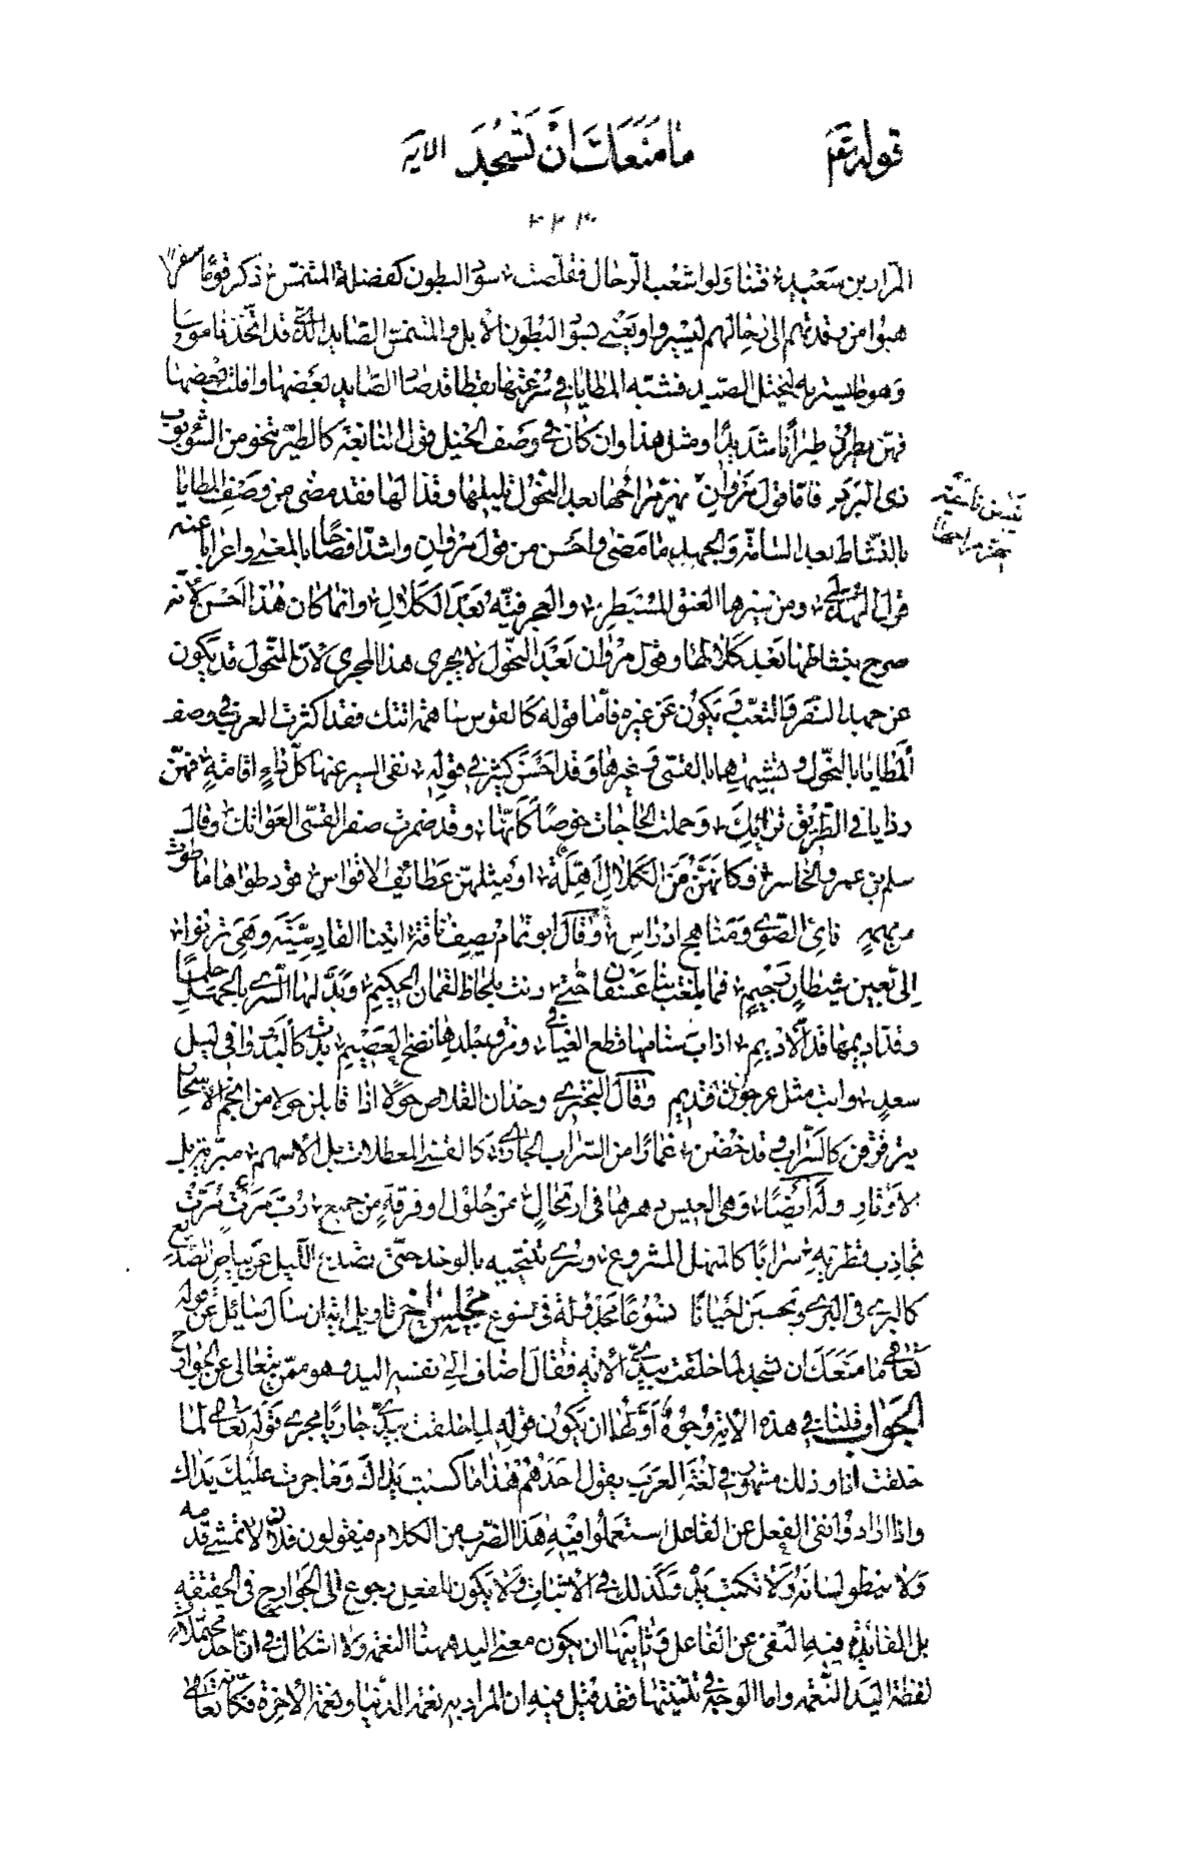 قوله تع ما منعك ان تسجد الاية
٢٢٣
المرار بن سعيد فتناولوا شعب الرحال فقلصت سود البطون كفضلة المتنمس ذكر قوما سفرا
هبوا من رقدتهم الى رحالهم ليسيروا ويعنى بسود البطون الابل والمتنمس الصايد الذى قد اتخذ ناموسا
وهو ما يستر به ليختل الصيد فشبه المطايا فى سرعتها بقطا قد صاد الصايد بعضها وافلت بعضها
فهن يطرن طيرانا شديدا ومثل هذا وان كان فى وصف الخيل قول النابغة كالطير تنجو من الشؤبوب
ذى البرد فاما قول مروان بعد النحول تليلها وقذالها فقد مضى من وصف المطايا
بالنشاط بعد السآمة والجهد ما مضى واحسن من قول مروان واشد افصاحا بالمعنى واعرابا عنه
قول الهذلى ومن سيرها العنق المسبطر والعجرفية بعد الكلال وانما كان هذا احسن لانه
صرح بنشاطها بعد كلالها وقول مروان بعد النحول لا يجرى هذا المجرى لان النحول قد يكون
عن جهد السفر والتعب ويكون عن غيره فاما قوله كالقوس ساهمة اتتك فقد اكثرت العرب فى وصف
المطايا بالنحول وتشبيهها بالقسى وغيرها وقد احسن كثير فى قوله نفى السير عنها كل داء اقامة فهن
رذايا فى الطريق ترائك وحملت الحاجات خوصا كانها وقد ضمرت صفر القسى العواتك وقال
سلم بن عمرو الخاسر وكانهن من الكلال اهلة او مثلهن عطائف الاقواس قود طواها ما طوت
من مهمه نائى الصوى ومناهج ادراس وقال ابو تمام يصف ناقة اتينا القادسية وهى ترنو
الى بعين شيطان رجيم فما بلغت بنا عسفان حتى رنت بلحاظ لقمان الحكيم وبدلها السرى بالجهل حلما
وقد اديمها قد الاديم اذاب سنامها قطع الفيافى ومزق جلدها نضح العصيم بدت كالبدر وافى ليل
سعد وابت مثل عرجون قديم وقال البحترى وخدان القلاص حولا اذا قابلن حولا من انجم الاسحار
يترقرقن كالسراب وقد خضن غمارا من السراب الجارى كالقسى المعطفات بل الاسهم مبرية بل
الاوتار وله ايضا وهى العيس دهرها فى ارتحال من حلول او فرقة من جميع رب مرت مرت
تجاذب قطريه سرابا كالمنهل المشروع وسرى تنتحيه بالوخد حتى تصدع الليل عن بياض الصديع
كالبرى فى البرى ويحسبن احيانا نسوعا مجدولة فى نسوع مجلس اخر تاويل اية ان سال سائل عن قوله
تعالى ما منعك ان تسجد لما خلقت بيدى الاية فقال اضاف الى نفسه اليد وهو ممن يتعالى عن الجوارح
الجواب قلنا فى هذه الاية وجوه اولها ان يكون قوله لما خلقت بيدى جاريا مجرى قوله تعالى لما
خلقت انا وذلك مشهور فى لغة العرب يقول احدهم هذا ما كسبت يداك وما جرت عليك يداك
واذا ارادوا نفى الفعل عن الفاعل استعملوا فيه هذا الضرب من الكلام فيقولون فلان لا تمشى قدمه
ولا ينطق لسانه ولا تكتب يده وكذلك فى الاثبات ولا يكون للفعل رجوع الى الجوارح فى الحقيقة
بل الفائدة فيه النفى عن الفاعل وثانيها ان يكون معنى اليد ههنا النعمة ولا اشكال فى ان احد محتملات
لفظة اليد النعمة واما الوجه فى تثنيتها فقد قيل فيه ان المراد به نعمة الدنيا ونعمة الاخرة فكانه تعالى